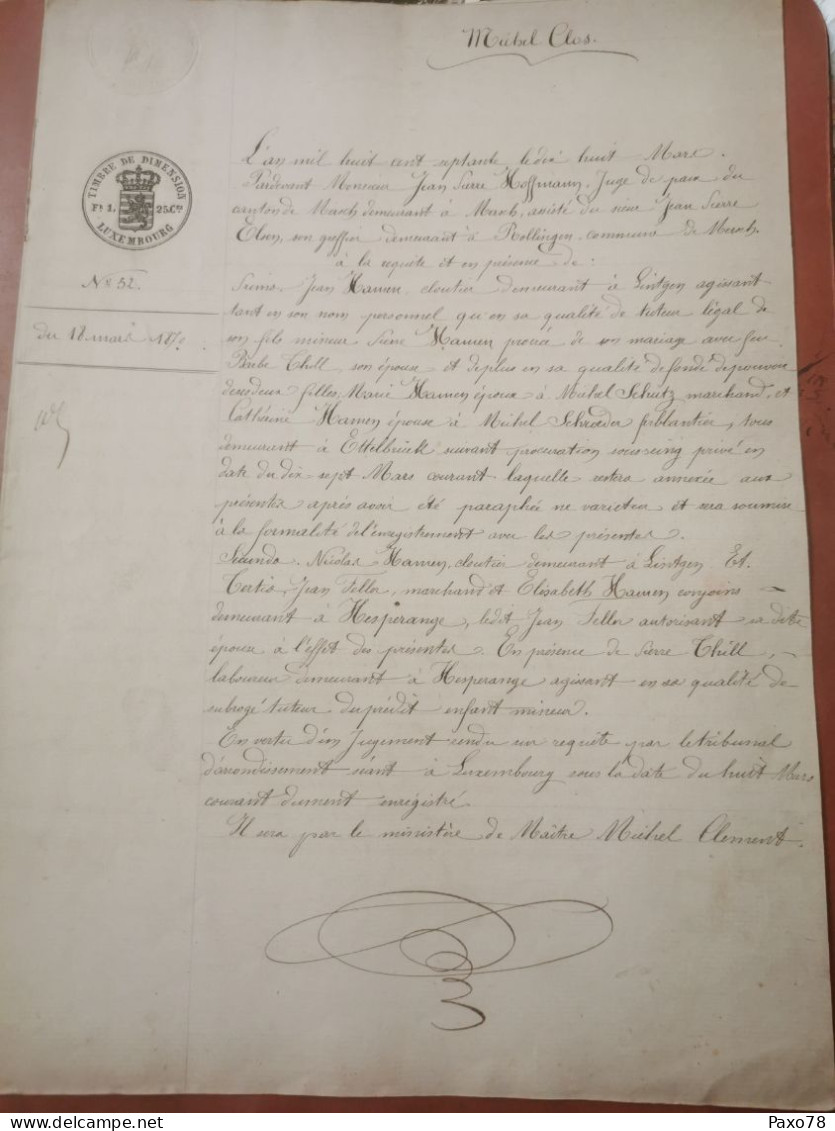 Michel Clos.
TIMBRE DE DIMENSION
Fr 1. 25 Cen
LUXEMBOURG
No 52.
du 18 mars 1870.
L'an mil huit cent septante, le dix huit Mars.
Pardevant Monsieur Jean Pierre Hoffmann, Juge de paix du
canton de Mersch demeurant à Mersch, assisté du sieur Jean Pierre
Elsen, son greffier demeurant à Rollingen, commune de Mersch.
à la requête et en présence de:
Primo. Jean Hamen, cloutier demeurant à Lintgen agissant
tant en son nom personnel qu'en sa qualité de tuteur légal de
son fils mineur Pierre Hamen procréé de son mariage avec feu
Barbe Thill, son épouse et deplus en sa qualité de fondé de pouvoir
de ses deux filles, Marie Hamen épouse à Michel Schutz marchand, et
Cathérine Hamen épouse à Michel Schroeder ferblantier, tous
demeurant à Ettelbruck suivant procuration sous seing privé en
date du dix-sept Mars courant laquelle restera annexée aux
présentes après avoir été paraphée ne varietur et sera soumise
à la formalité de l'énrégistrement avec les présentes.
Secundo. Nicolas Hamen, cloutier demeurant à Lintgen Et.
Tertio. Jean Feller, marchand et Elisabeth Hamen conjoins
demeurant à Hesperange, ledit Jean Feller autorisant sa dite
épouse à l'effet des présentes. En présence de Pierre Thill,
laboureur demeurant à Hesperange agissant en sa qualité de
subrogé tuteur du prédit enfant mineur.
En vertu d'un Jugement rendu sur requête par le tribunal
d'arrondissement séant à Luxembourg sous la date du huit Mars
courant dument enrégistré.
Il sera par le ministère de Maître Michel Clement.
Paxo78